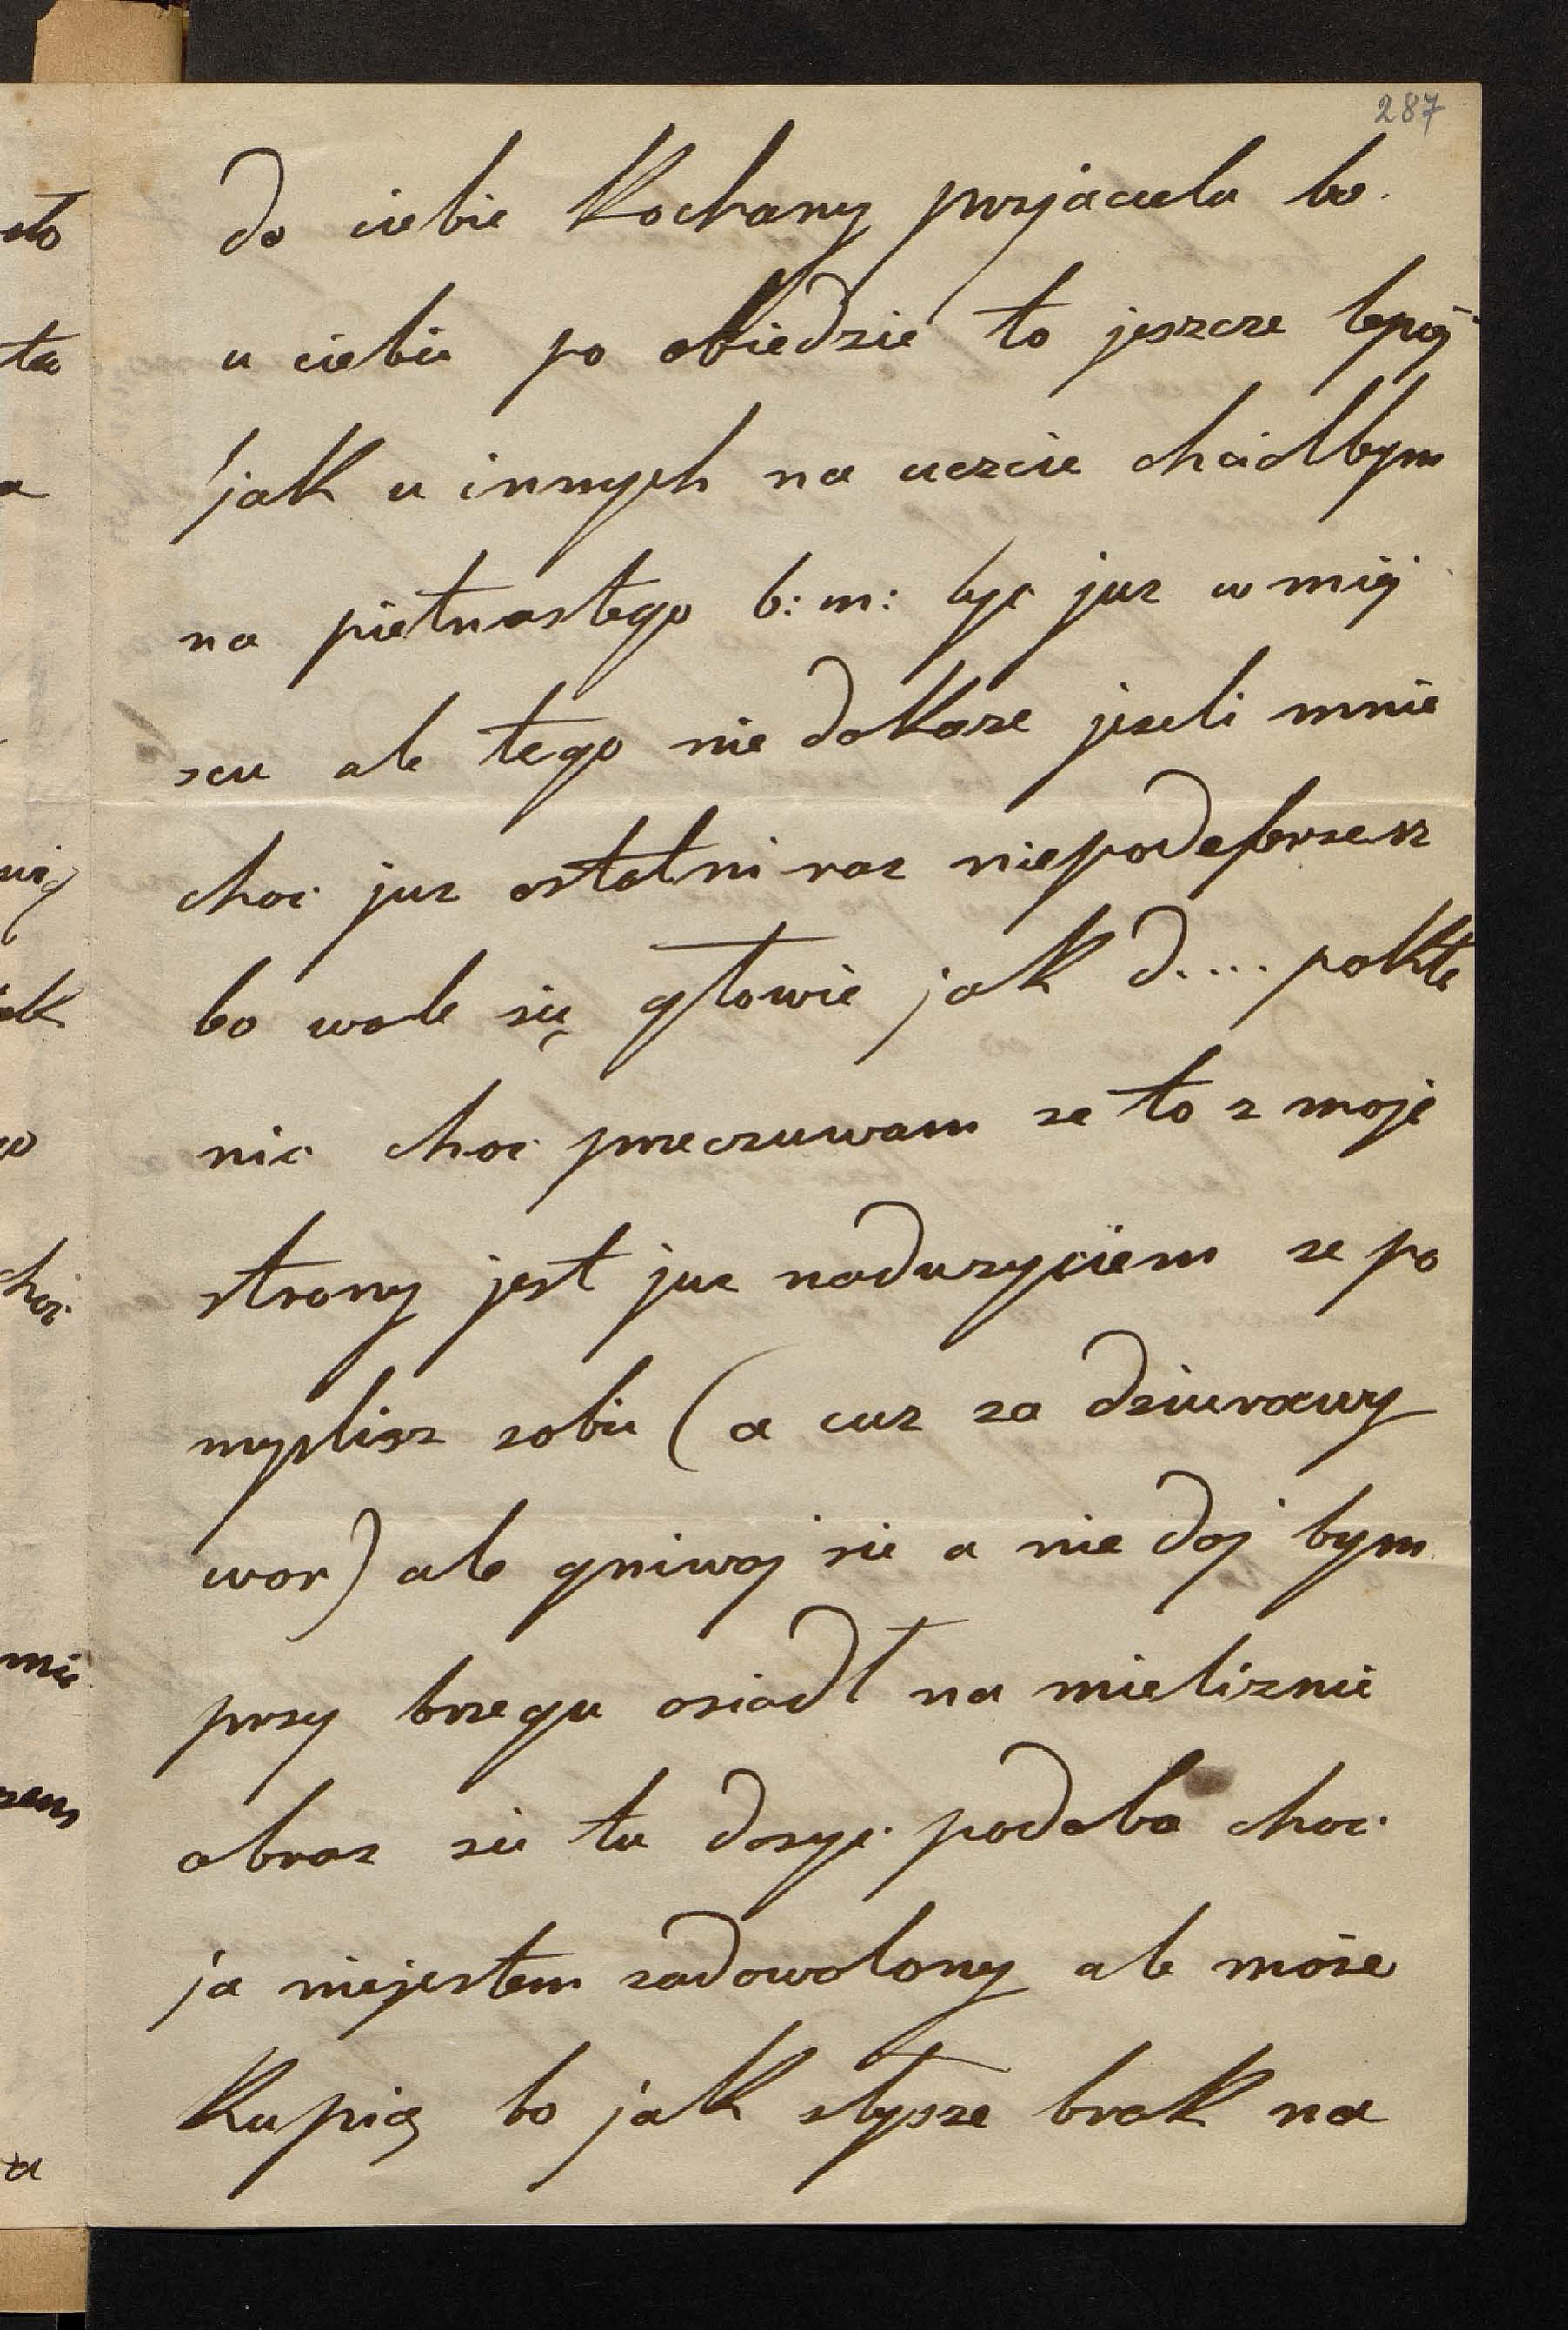 287
do ciebie Kochany przjacielu bo.
u ciebie po obiedzie to jeszcze lepiej
jak u innych na uczcie chciałbym
na pietnastego b: m: być juz w miej
scu ale tego nie dokaze jezeli mnie
choć juz ostatni raz niepodeprzesz
bo wale się głowie jak d.... pokłe
nic choć przeczuwam ze to z moje
strony jest juz naduzyciem ze po
myslisz sobie (a cuz za dziurawy
wor) ale gniwaj sie a nie daj bym
przy brzegu osiadł na mieliznie
obraz sie tu dosyć podoba choć
ja niejestem zadowolony ale może
Kupią bo jak słysze brak na